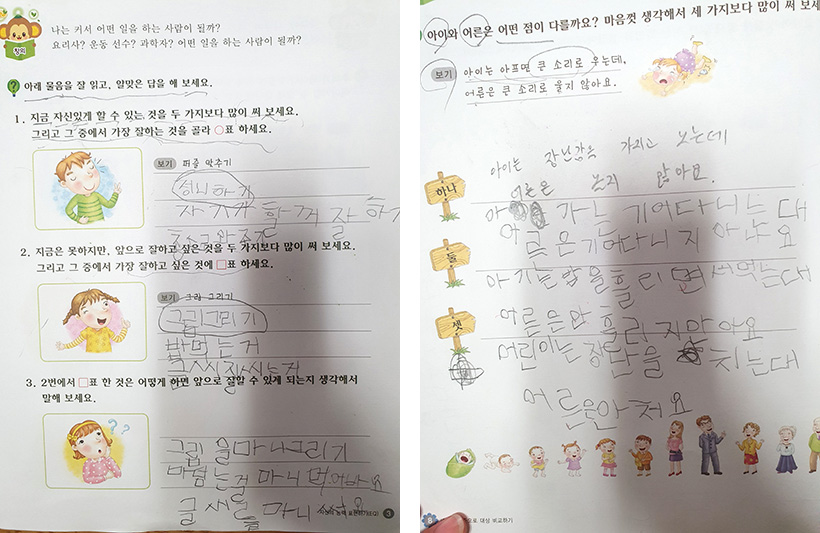 나는 커서 어떤 일을 하는 사람이 될까?
요리사? 운동 선수? 과학자? 어떤 일을 하는 사람이 될까?
창의
? 아래 물음을 잘 읽고, 알맞은 답을 해 보세요.
1. 지금 자신있게 할 수 있는 것을 두 가지보다 많이 써 보세요.
그리고 그 중에서 가장 잘하는 것을 골라 ○표 하세요.
보기 퍼즐 맞추기
하기
자기가 할꺼 잘 하기
2. 지금은 못하지만, 앞으로 잘하고 싶은 것을 두 가지보다 많이 써 보세요.
그리고 그 중에서 가장 잘하고 싶은 것에 □표 하세요.
보기 그림 그리기
그림그리기
밥먹는거
3. 2번에서 □표 한 것은 어떻게 하면 앞으로 잘할 수 있게 되는지 생각해서
말해 보세요.
? ?
그림 을마니그리기
마니
마니
3
아이와 어른은 어떤 점이 다를까요? 마음껏 생각해서 세 가지보다 많이 써 보세
보기
아이는 아프면 큰 소리로 우는데,
어른은 큰 소리로 울지 않아요.
아이는 장난감을 가지고 노는데
어른은 놀지 않아요.
하나
가는 기어다니는대
어른은기어다니지아나요
둘
아기는밥을흘리면서먹는대
어른은안흘리지마아요
셋
어린이는장난을 치는대
어른은안처요
8
대상 비교하기